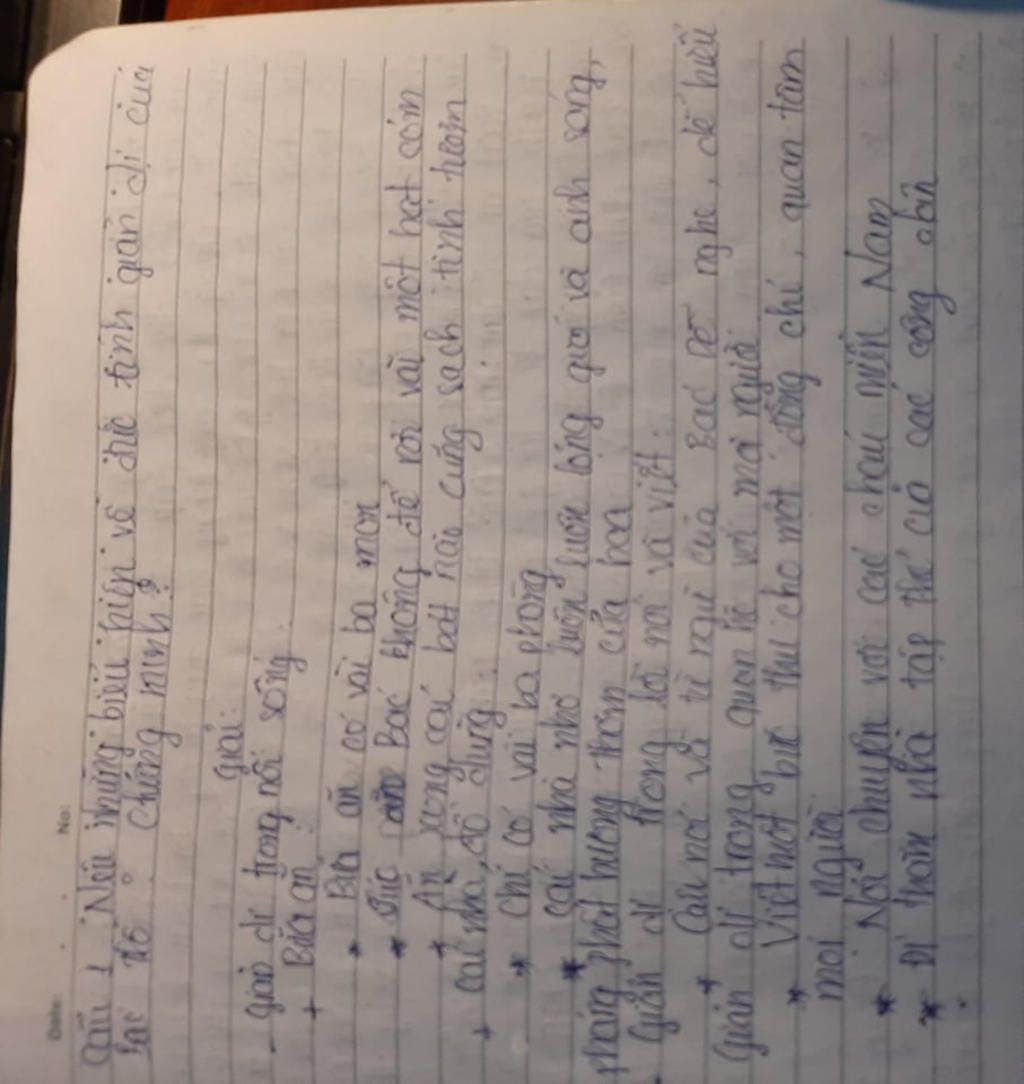 Date: No:
Câu 1: Nêu những biểu hiện về đức tính giản dị của
Bác Hồ Chí Minh?
giải:
- giản dị trong lối sống.
+ Bữa ăn:
* Bữa ăn có vài ba món
* Lúc ăn Bác không để rơi vãi một hạt cơm
* Ăn xong cái bát nào cũng sạch tinh tươm
+ cái nhà, đồ dùng:
* Chỉ có vài ba phòng
* cái nhà nhỏ luôn luôn lộng gió và ánh sáng,
phảng phất hương thơm của hoa
Giản dị trong lời nói và viết:
* Câu nói và từ ngữ của Bác Dễ nghe, dễ hiểu
Giản dị trong quan hệ với mọi người
* Viết một bức thư cho một đồng chí, quan tâm
mọi người
* Nói chuyện với các cháu miền Nam
* Đi thăm nhà tập thể của các công nhân